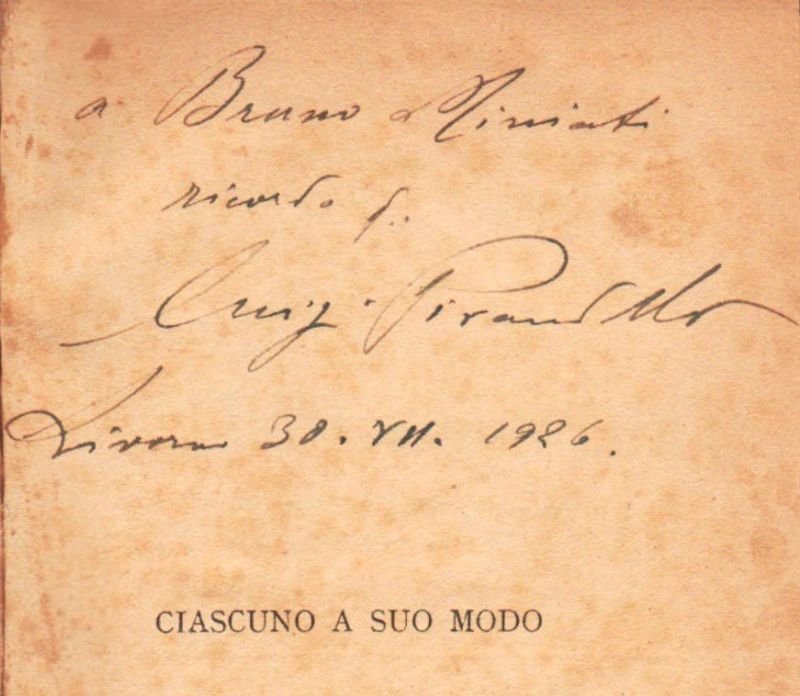 a Bruno Miniati
ricordo di
Luigi Pirandello
Livorno 30. VII. 1926.
CIASCUNO A SUO MODO